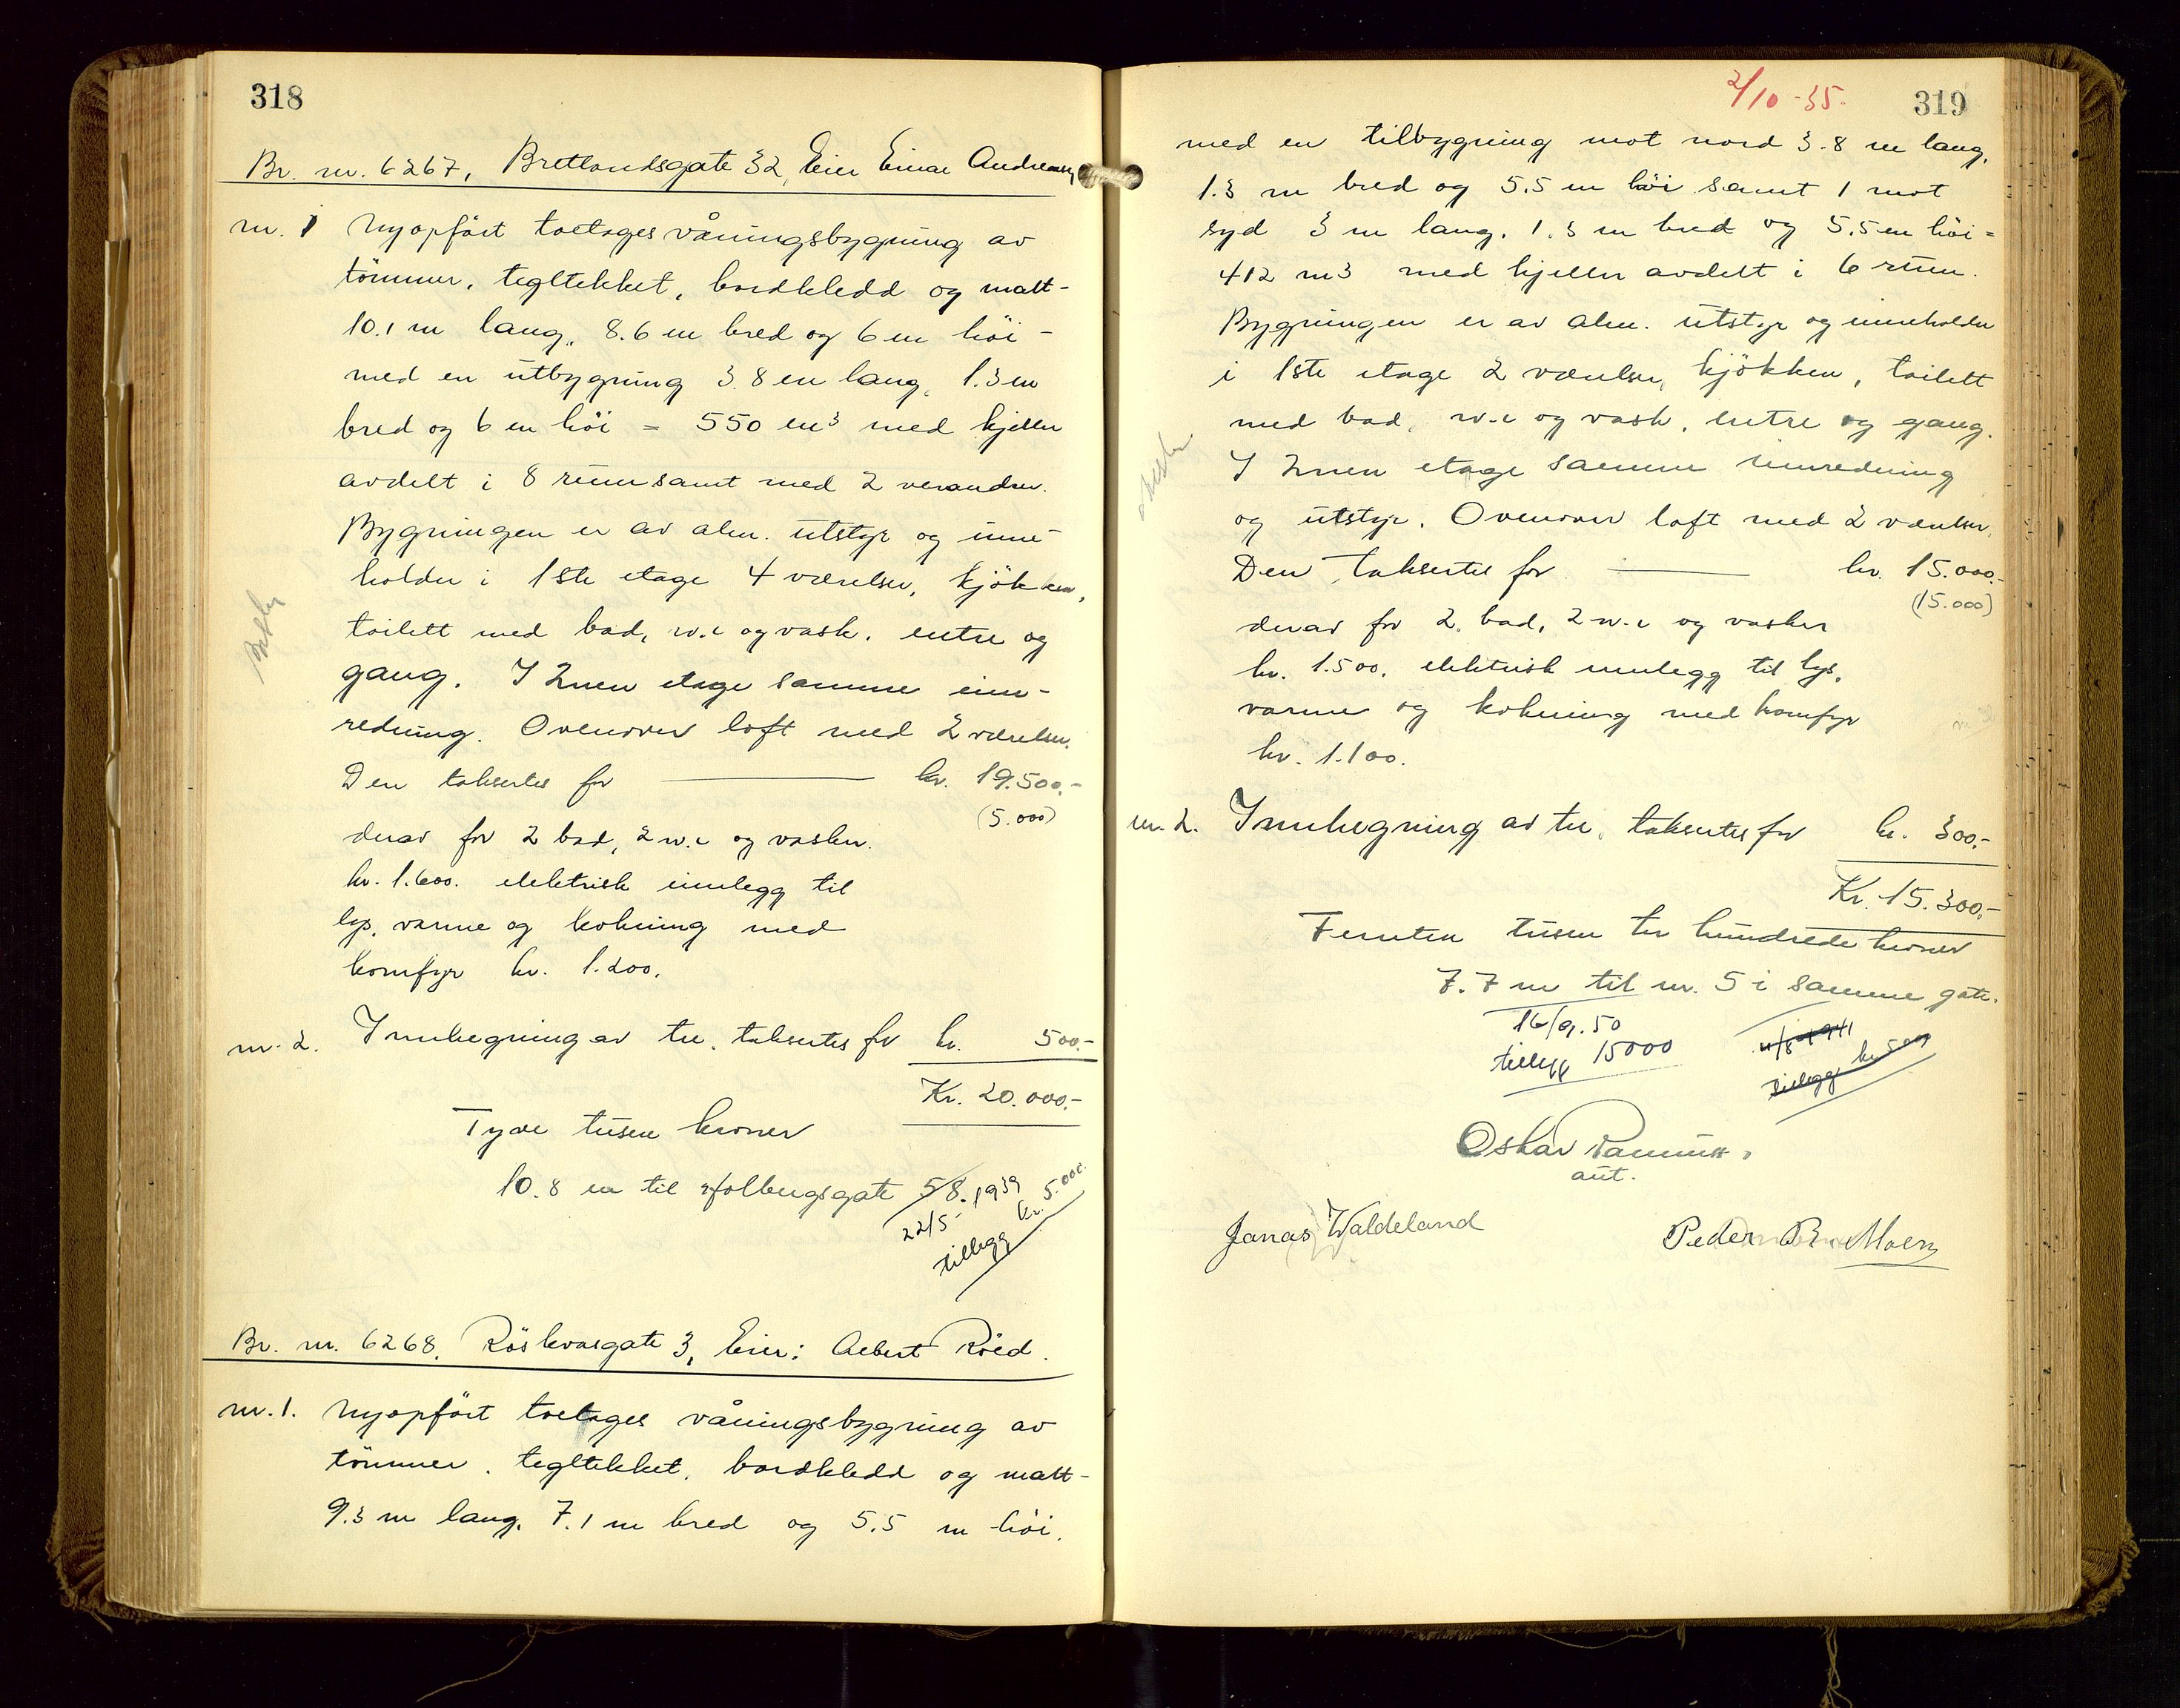 318
Br. nr. 6267, Bretlandsgate 32, Eier Einar Andreassen
nr. 1 Nyopført toetages våningsbygning av
tømmer, tegltekket, bordkledd og malt -
10.1 m lang, 8.6 m bred og 6 m høi -
med en utbygning 3.8 m lang, 1.3 m
bred og 6 m høi = 550 m3 med kjeller
avdelt i 8 rum samt med 2 verandaer.
Bygningen er av alm. utstyr og inne-
holder i 1ste etage 4 værelser, kjøkken,
toilett med bad, w.c og vask, entre og
gang. I 2nen etage samme inn-
redning. Ovenover loft med 2 værelser.
Den takseres for kr. 19.500.-
(5.000)
derav for 2 bad, 2 w.c og vasker
kr. 1.600. elektrisk innlegg til
lys, varme og kokning med
komfyr kr. 1.200.
nr. 2. Innhegning av tre, takseres for kr. 500.-
Kr. 20.000.-
Tyve tusen kroner
10.8 m til Holbergsgate 5/8.
22/5 - 1939
tillegg kr. 5.000.
Br. nr. 6268. Röskvasgate 3, Eier: Albert Röed.
nr. 1. Nyopført toetages våningsbygning av
tømmer, tegltekket, bordkledd og malt -
9.3 m lang, 7.1 m bred og 5.5 m høi,
2/10-35.
319
med en tilbygning mot nord 3.8 m lang,
1.3 m bred og 5.5 m høi samt 1 mot
syd 3 m lang, 1.3 m bred og 5.5 m høi =
412 m3 med kjeller avdelt i 6 rum.
Bygningen er av alm. utstyr og inneholder
i 1ste etage 2 værelser, kjøkken, toilett
med bad, w.c og vask, entre og gang.
I 2nen etage samme innredning
og utstyr. Ovenover loft med 2 værelser.
Den takseres for kr. 15.000.-
(15.000)
derav for 2 bad, 2 w.c og vasker
kr. 1.500. elektrisk innlegg til lys,
varme og kokning med komfyr
kr. 1.100.
nr. 2. Innhegning av tre, takseres for kr. 300.-
Kr. 15.300.-
Femten tusen tre hundrede kroner
7.7 m til nr. 5 i samme gate.
16/9.50
tillegg 15000
4/8 1941
tillegg kr 5000
Oskar
aut.
Jonas Waldeland
Peder B. Moen